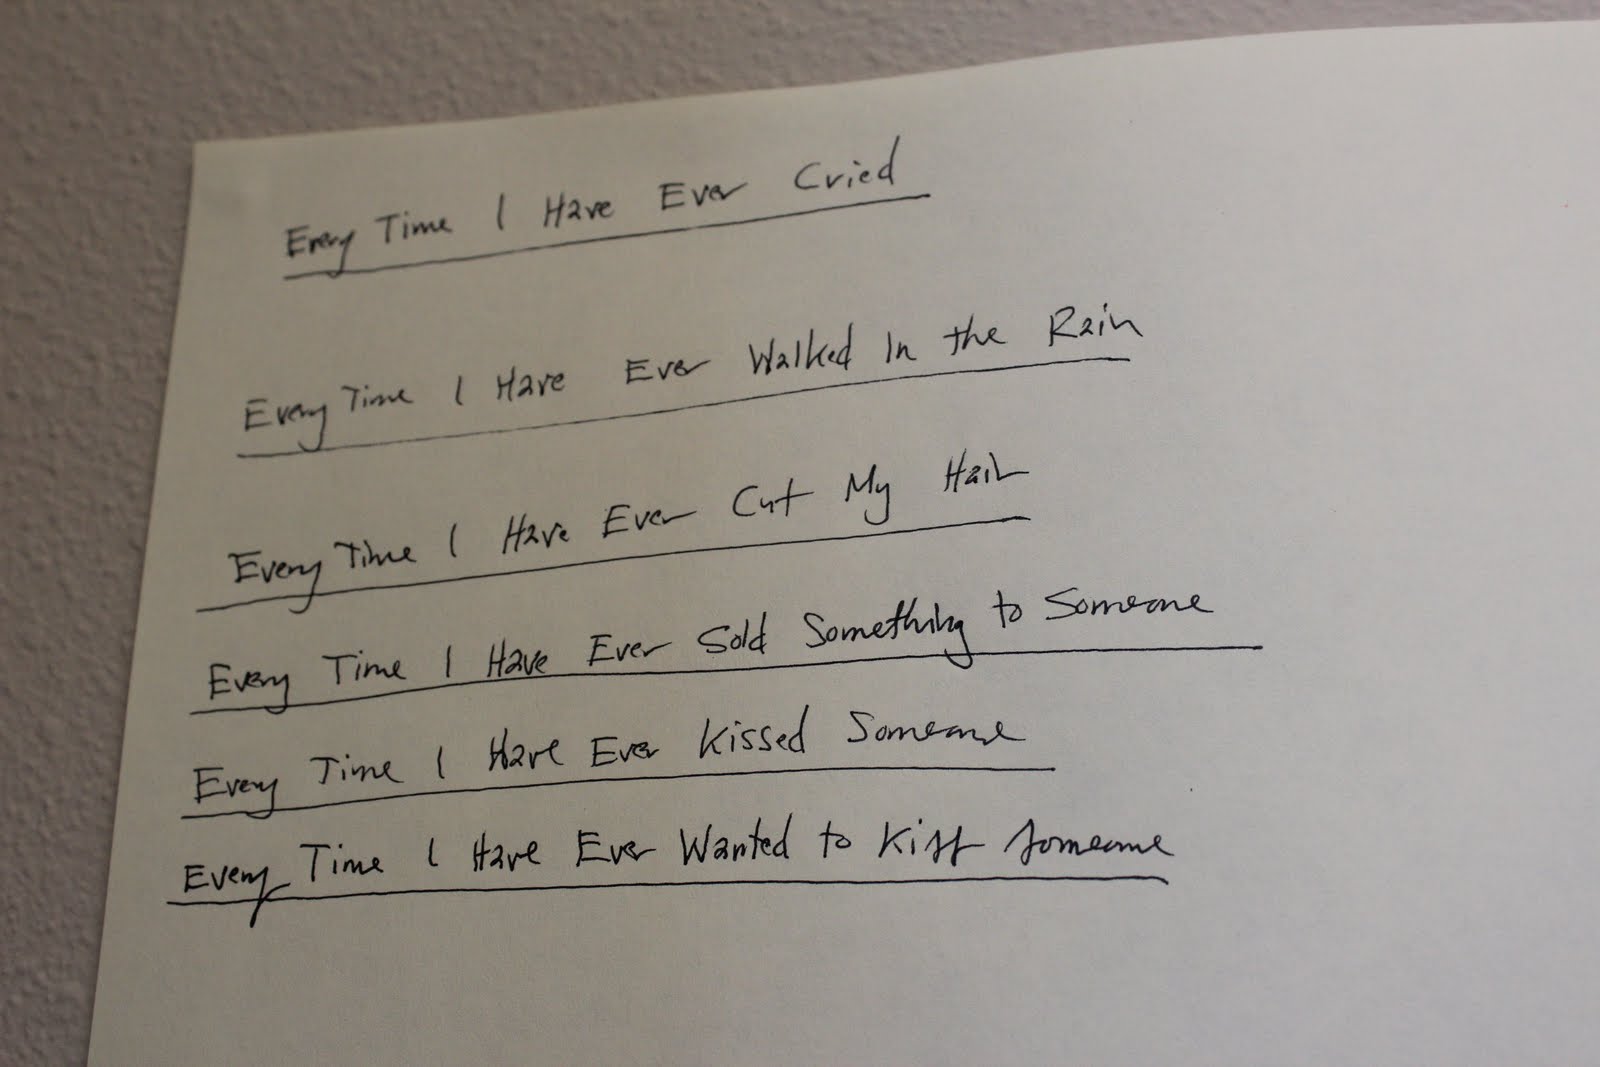 Every Time I Have Ever Cried
Every Time I Have Ever Walked In the Rain
Every Time I Have Ever Cut My Hair
Every Time I Have Ever Sold Something to Someone
Every Time I Have Ever Kissed Someone
Every Time I Have Ever Wanted to Kiss Someone